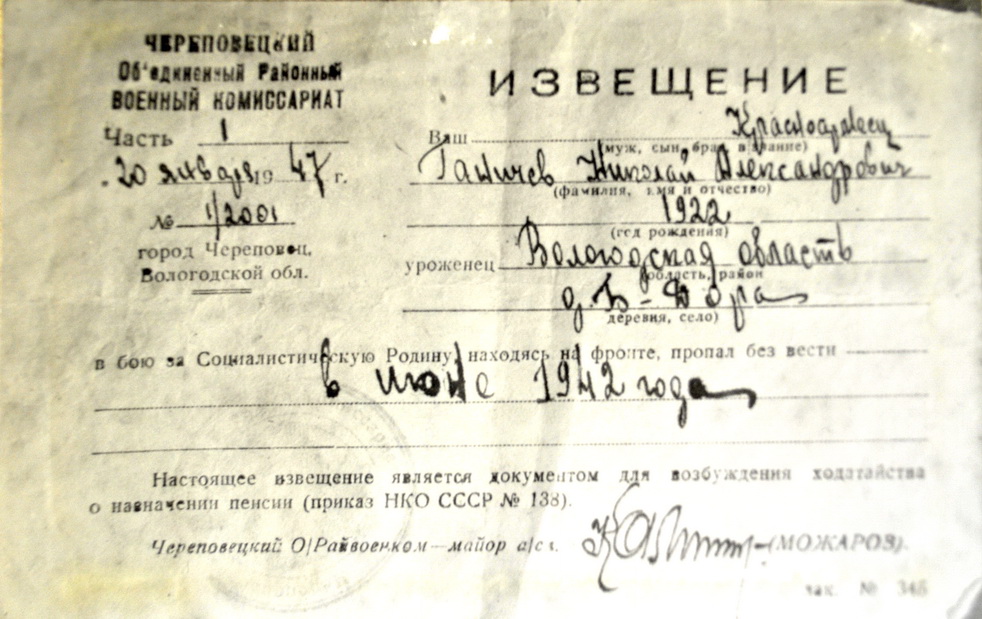 ЧЕРЕПОВЕЦКИЙ
Об'единенный Районный
ВОЕННЫЙ КОМИССАРИАТ
Часть 1
20 января 1947 г.
№ 1/2001
город Череповец,
Вологодской обл.
ИЗВЕЩЕНИЕ
Ваш Красноармеец
(муж, сын, брат, звание)
Ганичев Николай Александрович
(фамилия, имя и отчество)
1922
(год рождения)
уроженец Вологодская область
(область, район
д. Б-Дора
деревня, село)
в бою за Социалистическую Родину, находясь на фронте, пропал без вести
в июне 1942 года
Настоящее извещение является документом для возбуждения ходатайства
о назначении пенсии (приказ НКО СССР № 138).
Череповецкий О/Райвоенком—майор а/с (МОЖАРОВ).
зак. №